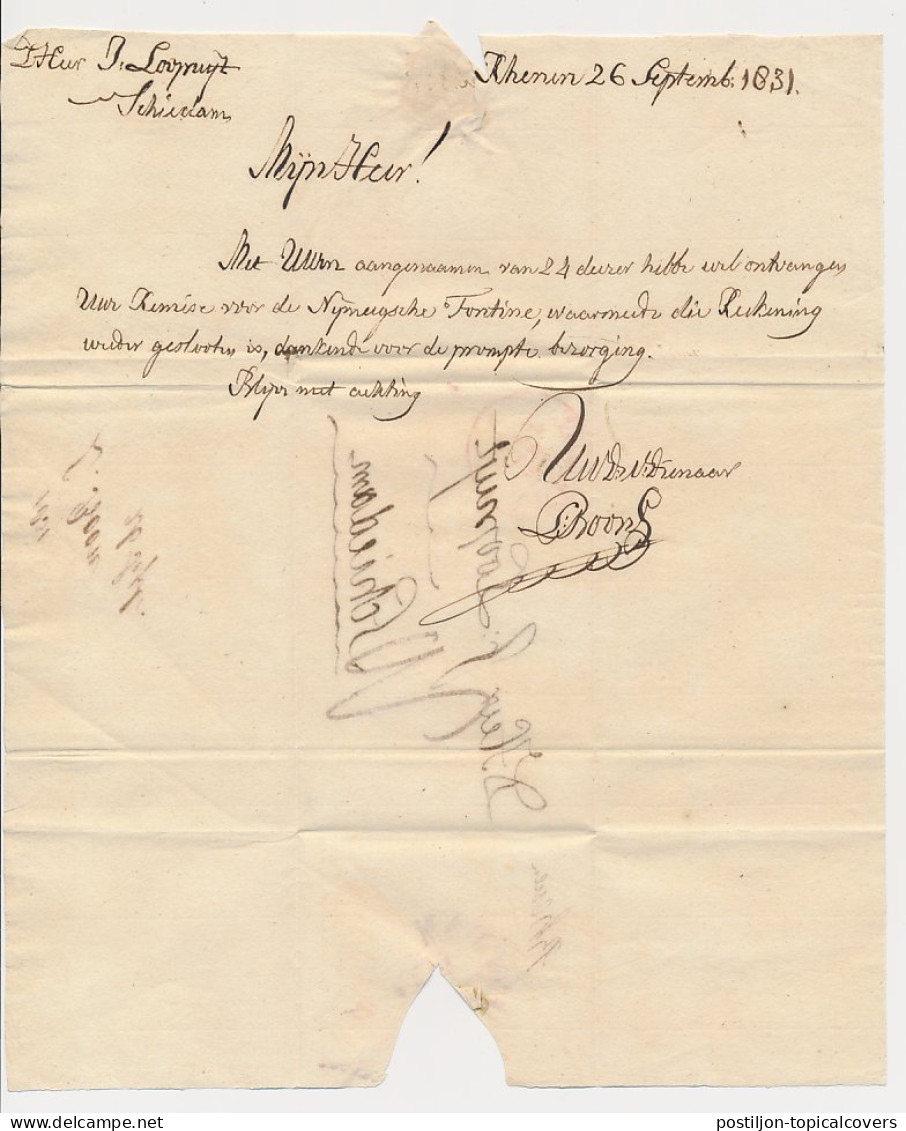 D'Heer J. Loopuyt
Schiedam
Rhenen 26 Septemb: 1831.
Mijn Heer!
Met UWen aangenaamen van 24 dezer hebbe wel ontvangen
Uwe Remise voor de Nijmeegsche Tontine, waarmede die Rekening
weder geslooten is, dankende voor de prompte bezorging.
Blijve met achting
UwD.W.Dienaar
Boon
D'Heer
J. Loopuyt
Schiedam
postiljon-topicalcovers